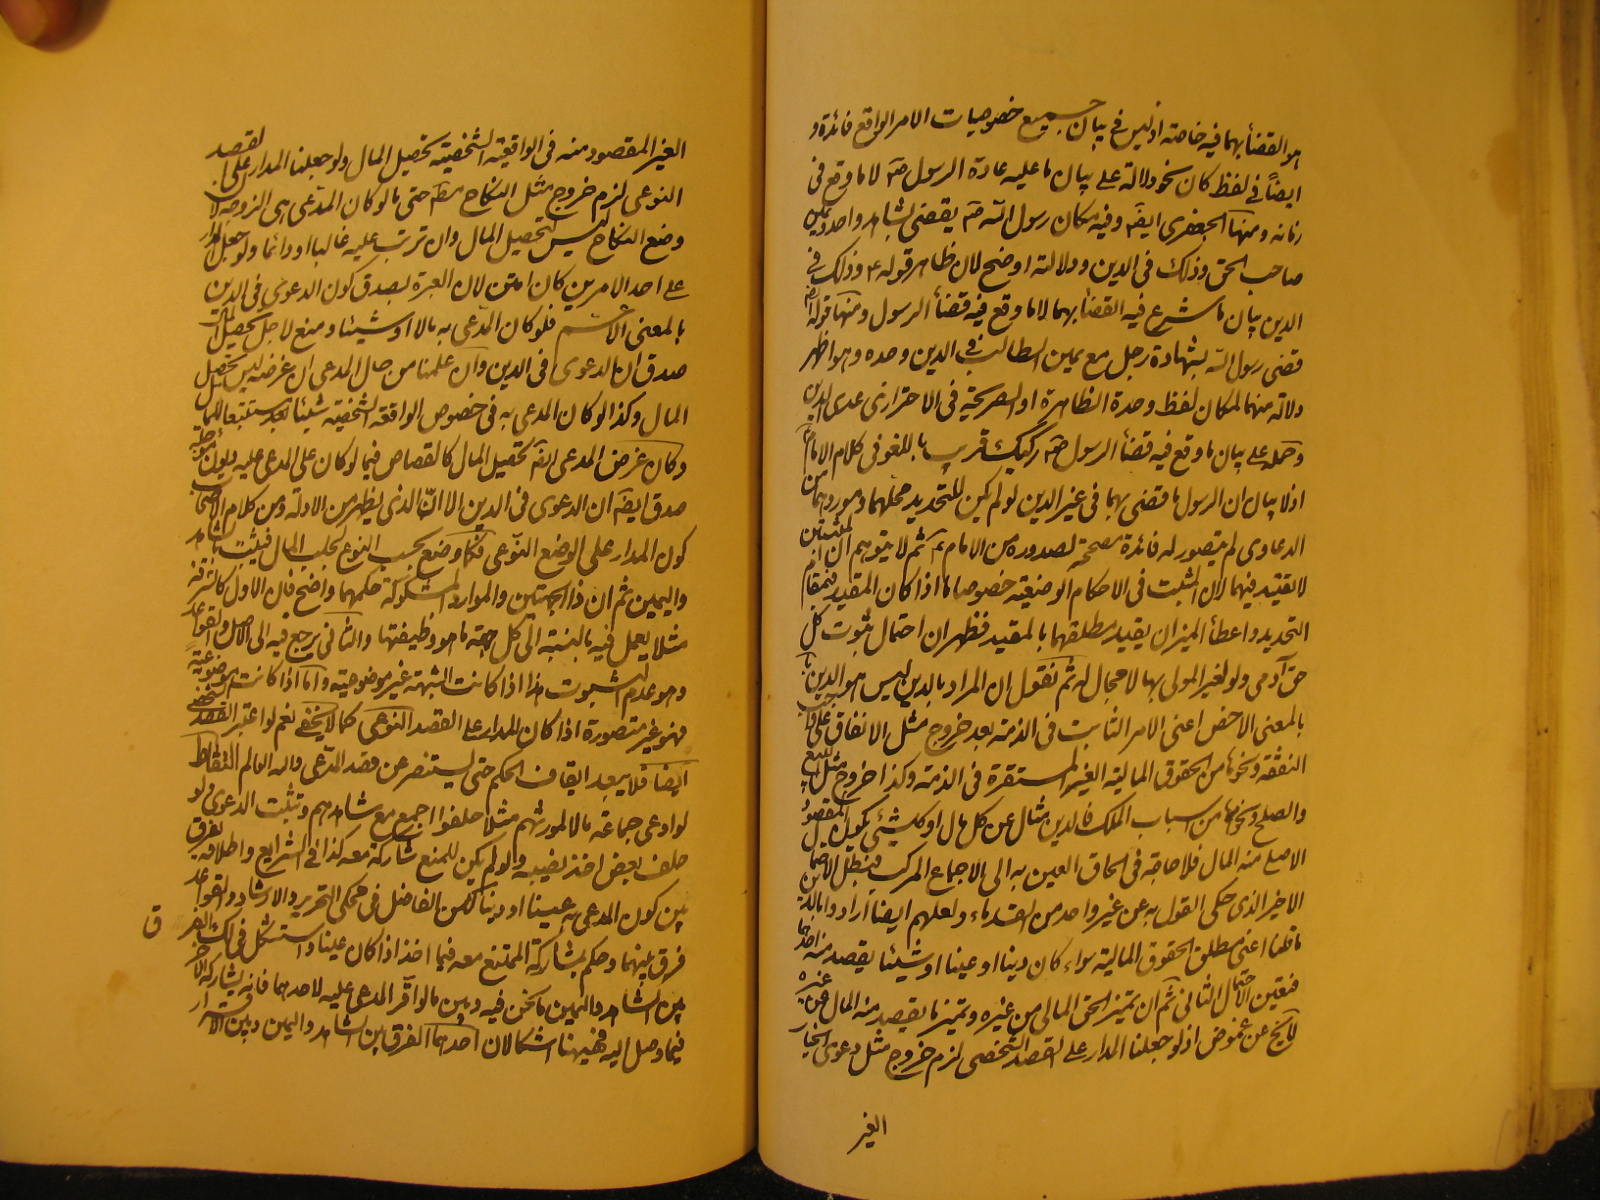 هو القضأ بهما فيه خاصته اذ ليس فى بيان جميع خصوصيات الامر الواقع فائدة و
ايضاً فى لفظ كان نحو دلالة على بيان ما عليه عادة الرسول صم لا ما وقع فى
زمانه ومنها الجعفرى ايضا وفيه كان رسول الله صم يقضى بشاهد واحد ويمين
صاحب الحق وذلك فى الدين ودلالته اوضح لان ظاهر قوله ع وذلك فى
الدين بيان ما شرع فيه القضأ بهما لا ما وقع فيه قضأ الرسول ومنها قوله
قضى رسول الله بشهادة رجل مع يمين الطالب فى الدين وحده وهو اظهر
دلالة منهما لمكان لفظ وحدة الظاهرة او الصريحة فى الاحتراز عن عدى الدين
وحمله على بيان ما وقع فيه قضأ الرسول صم ركيك قريب باللغو فى كلام الامام
اذ لا بيان ان الرسول ما قضى بهما فى غير الدين لو لم يكن للتحديد محلهما وموردهما من
الدعاوى لم يتصور له فائدة مصححة لصدوره من الامام ثم لا يتوهم ان المثبتين
لا تقييد فيهما لان المثبت فى الاحكام الوضعية خصوصا اذا كان المقيد فى مقام
التحديد واعطأ الميزان يقيد مطلقهما بالمقيد فظهر ان احتمال ثبوت كل
حق آدمى ولو لغير المولى بها لا مجال له ثم نقول ان المراد بالدين ليس هو الدين
بالمعنى الاخص اعنى الامر الثابت فى الذمة بعد خروج مثل الانفاق على
النفقة ونحوها من الحقوق المالية الغير المستقرة فى الذمة وكذا خروج مثل البيع
والصلح ونحوهما من اسباب الملك فالدين مثال عن كل مال او كل شئى يكون المقصود
الاصلى منه المال فلا حاجة فى الحاق العين به الى الاجماع المركب فبطل الاحتمال
الاخير الذى حكى القول به عن غير واحد من القدماء ولعلهم ايضا ارادوا بالدين
ما قلنا اعنى مطلق الحقوق المالية سواء كان دينا او عينا او شيئا يقصد منه احدهما
فتعين الاحتمال الثانى ثم ان تميز الحق المالى من غيره وتميز ما يقصد منه المال عن غيره
لا يخ عن غموض اذ لو جعلنا المدار على القصد الشخصى لزم خروج مثل دعوى الخيار
الغير
الغير المقصود منه فى الواقعة الشخصية تحصيل المال ولو جعلنا المدار على القصد
النوعى لزم خروج مثل النكاح مطلقا حتى ما لو كان المدعى هى الزوجة لان
وضع النكاح ليس لتحصيل المال وان ترتب عليه غالبا او دائما ولو جعل المدار
على احد الامرين كان امتن لان العبرة بصدق كون الدعوى فى الدين
بالمعنى الاعم فلو كان المدعى به مالا او شيئا وضع لاجل تحصيل المال
صدق ان الدعوى فى الدين وان علمنا من حال المدعى ان غرضه ليس تحصيل
المال وكذا لو كان المدعى به فى خصوص الواقعة الشخصية شيئا بعد مستتبعا للمال
وكان غرض المدعى ايضا تحصيل المال كالقصاص فيما لو كان على المدعى عليه ديون
صدق ايضا ان الدعوى فى الدين الا ان الذى يظهر من الادلة ومن كلام الاصحاب
كون المدار على الوضع النوعى فكلما وضع بحسب النوع لجلب المال فيثبت بالشاهد
واليمين ثم ان ذا الجهتين والموارد المشكوكة حكمهما واضح فان الاول كالسرقة
مثلا يعمل فيه بالنسبة الى كل جهة ما هو وظيفتها والثانى يرجع فيه الى الاصل والقواعد
وهو عدم الثبوت هذا اذا كانت الشبهة غير موضوعية واما اذا كانت موضوعية
فهو غير متصورة اذا كان المدار على القصد النوعى كما لا يخفى نعم لو اعتبر القصد الشخصى
ايضا فلا يبعد ايقاف الحكم حتى يستفسر عن قصد المدعى والله العالم التقاط
لو ادعى جماعة مالا لمورثهم مثلا حلفوا اجمع مع شاهدهم وتثبت الدعوى ولو
حلف بعض اخذ نصيبه ولو لم يكن للممتنع شاركة معه كذا فى الشرايع واطلاقه يفرق
بين كون المدعى به عينا او دينا لكن الفاضل فى محكى التحرير والارشاد والقواعد
فرق بينهما وحكم بمشاركة الممتنع معه فيما اخذ اذا كان عينا واستشكل فى ذلك الفرق
ق
بين الشاهد واليمين ما نحن فيه وبين ما لو اقر المدعى عليه لاحدهما فانه يشاركه الاخر
فيما وصل اليه فهيهنا اشكالان احدهما الفرق بين الشاهد واليمين وبين الاقرار